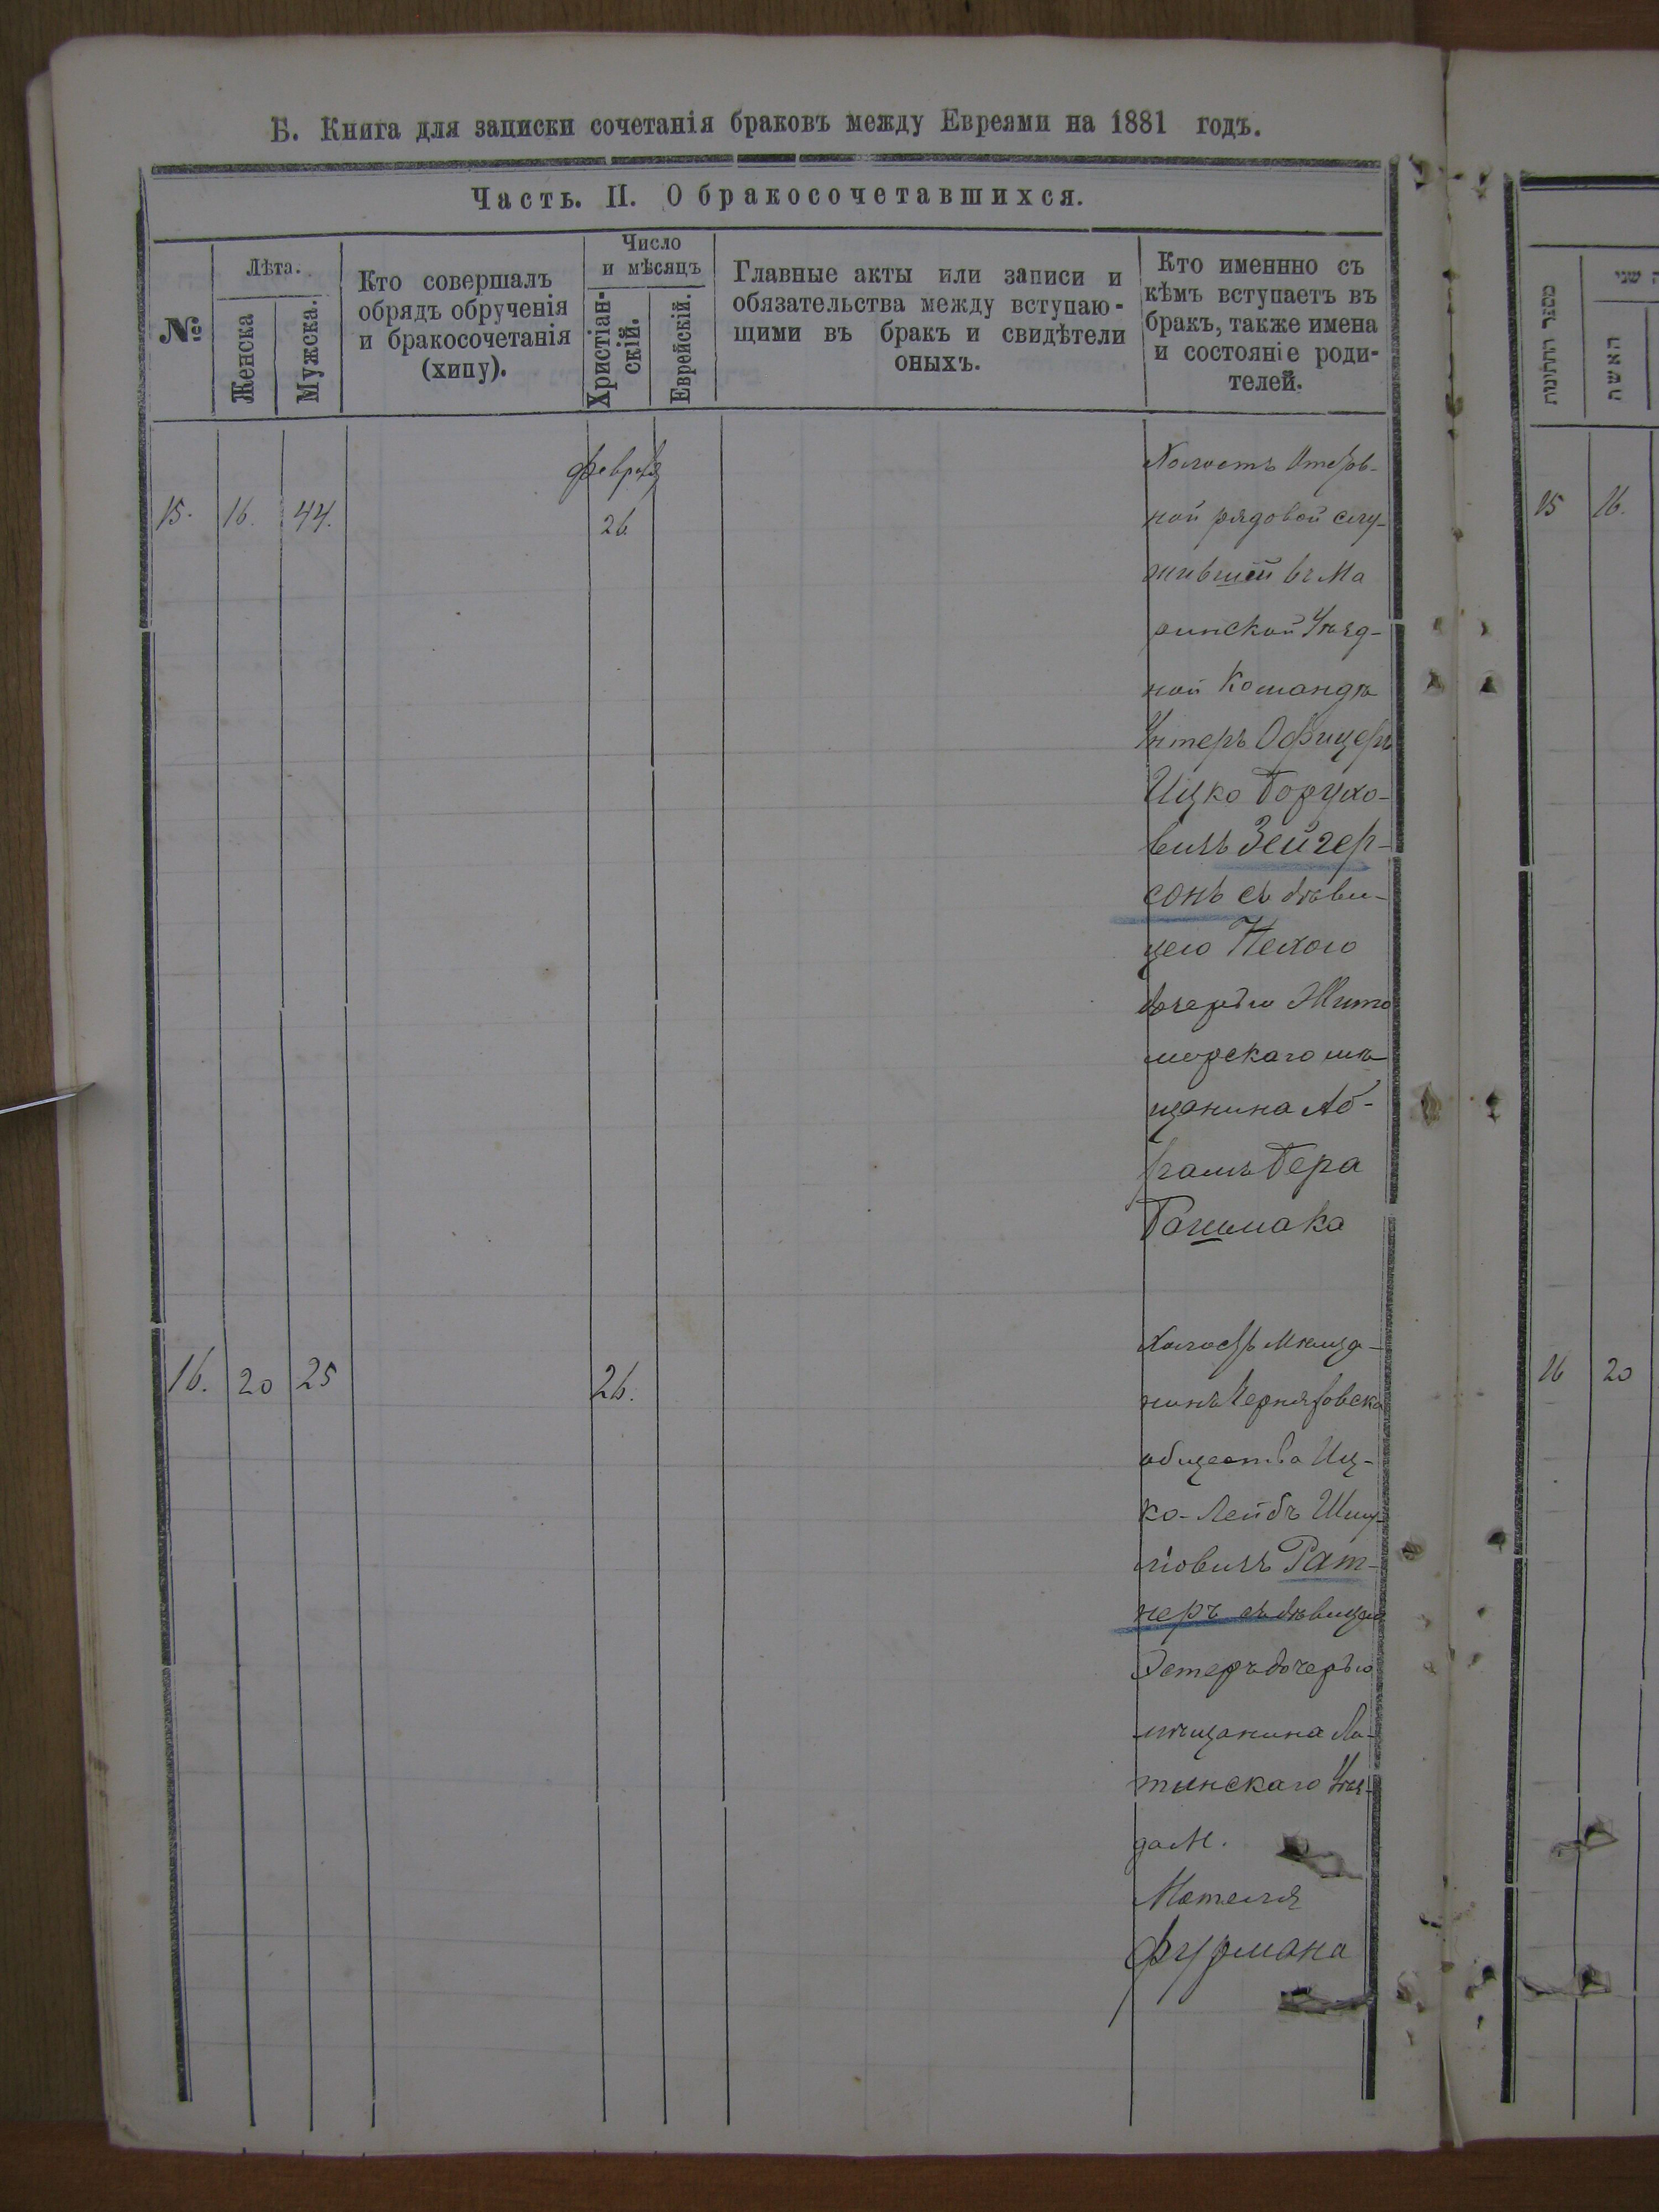 Б. Книга для записки сочетанія браковъ между Евреями на 1881 годъ.
Часть. II. О бракосочетавшихся.
№
Лѣта.
Женска
Мужска.
Кто совершалъ
обрядъ обрученія
и бракосочетанія
(хипу).
Число
и мѣсяцъ
Христіан-
скій.
Еврейскій.
Главные акты или записи и
обязательства между вступаю-
щими въ бракъ и свидѣтели
оныхъ.
Кто именнно съ
кѣмъ вступаетъ въ
бракъ, также имена
и состояніе роди-
телей.
15. 16. 44.
февраля
26
Холостъ
ной рядовой слу-
жившей въ Ма
ринской Уѣзд-
ной Командѣ
Унтеръ Офицеръ
Ицко Борухо-
вичъ Зейгер-
сонъ съ дѣви-
цею Песею
дочерью Жито
мирскаго мѣ
щанина Аб-
рамъ Бера
16. 20 25
26.
Холостъ мѣща-
нинъ Черняховска
общества Иц-
ко-Лейбъ Шму-
ліовичъ Рат-
неръ съ дѣвицею
Эстеръ дочерью
мѣщанина Ла-
тынскаго Уѣз-
да М.
Мотеля
Фурмана
מספר החתונות
האשה
ה שני
15 16.
16 20